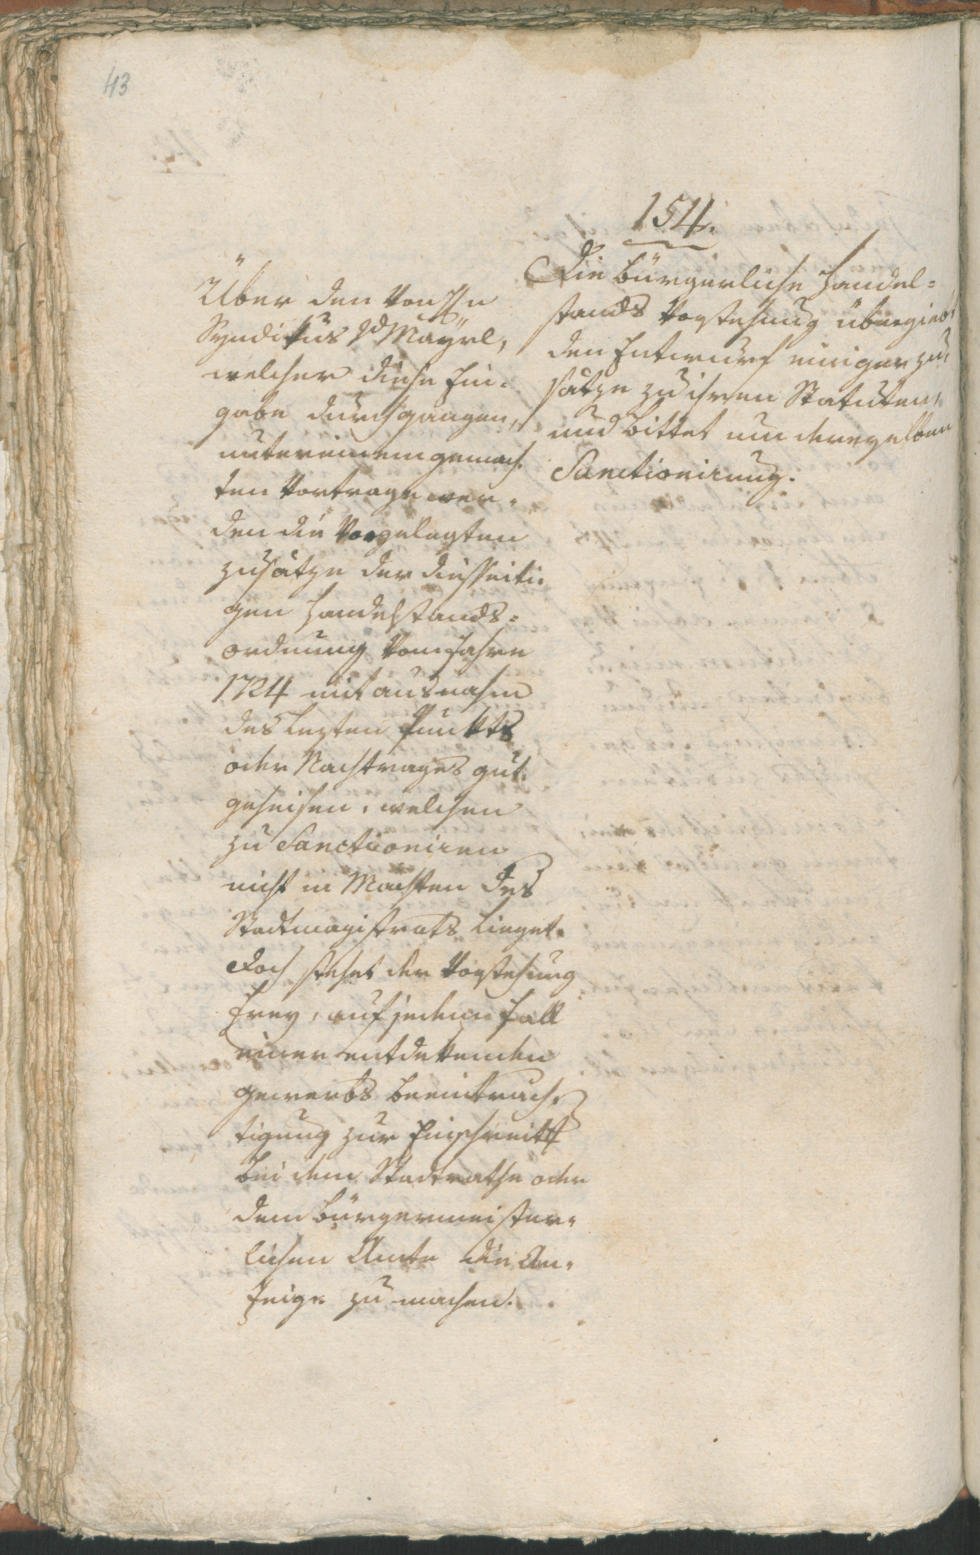 43
154.
Die bürgerliche Handel=
stands Vorstehung übergiebt
den Entwurf einiger Zu=
sätze zu ihren Statuten,
und bittet um deroselben
Sanctionirung.
Über den von
Syndikus Mayrl,
welcher diese Ein=
gabe durchgangen,
untereinem gemach=
ten Vortrage wer=
den die Vorgelegten
Zusätze der diesseiti=
gen Handelstands=
ordnung vom Jahre
1724 mit ausnahm
des lezten Punkts
oder Nachtrages gut=
geheisen, welchen
zu Sanctioniren
nicht in Machten des
Stadtmagistrats lieget.
Doch stehet der Vorstehung
frey, auf jeden Fall
einer entdekenden
gewerbs beeinträch=
tigung zur Einschreitt
bei dem Stadtrathe oder
dem bürgermeister=
lichen Amte die An=
zeige zu machen.